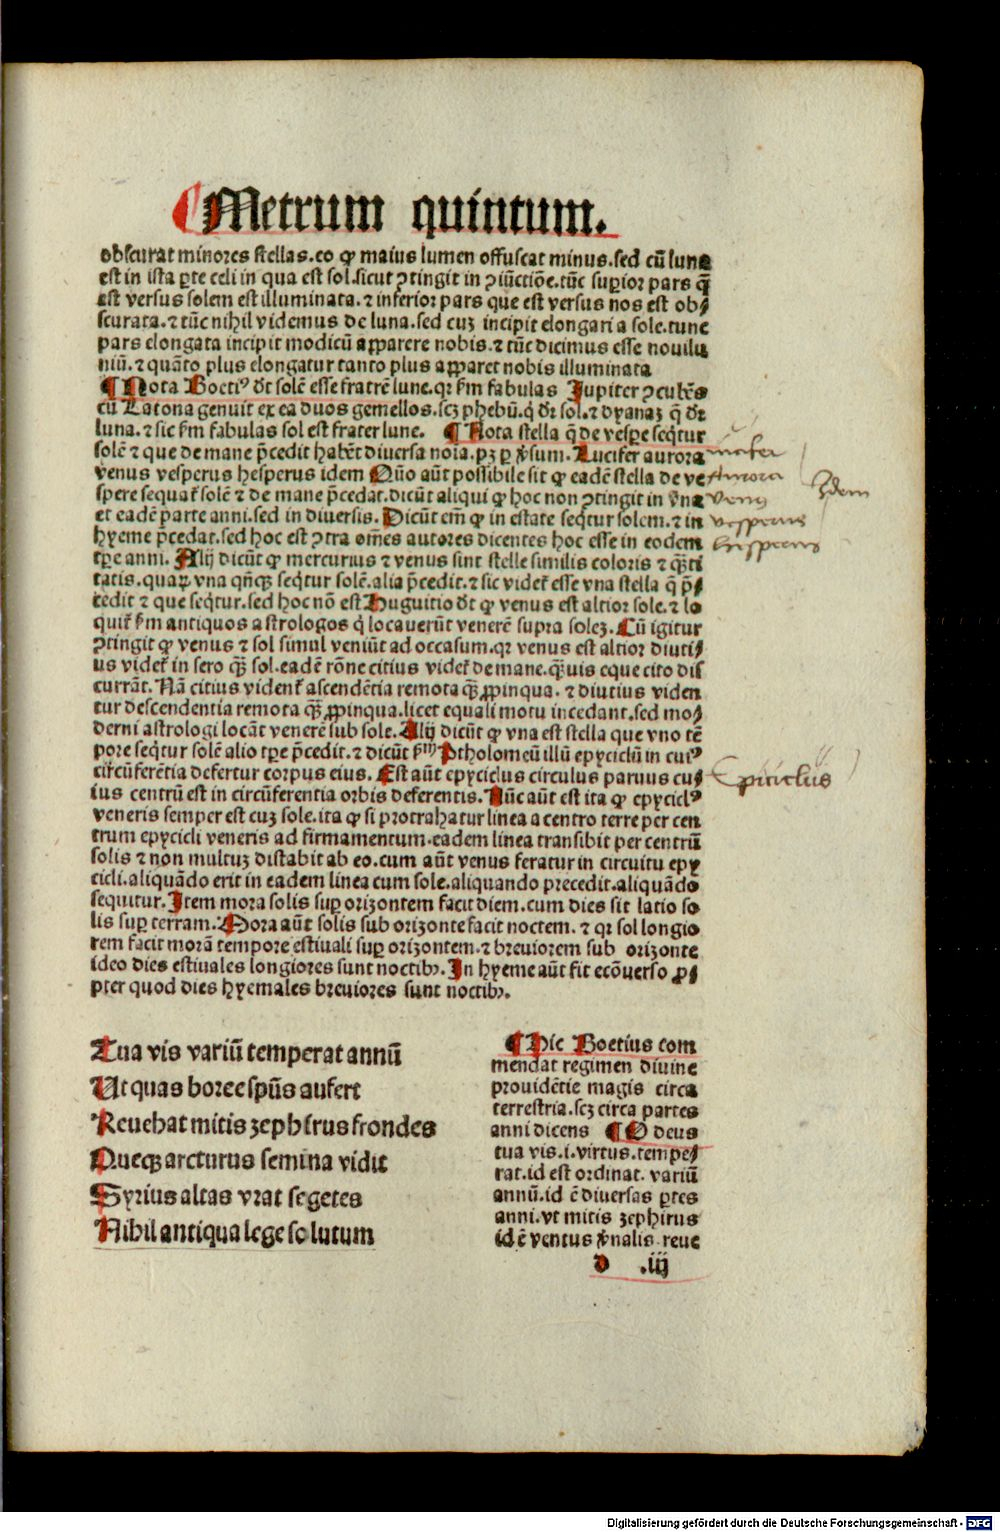 ¶ Metrum quintum.
obscurat minores stellas.eo ꝙ maius lumen offuscat minus.sed cū luna
est in ista ꝑte celi in qua est sol.sicut ꝯtingit in ꝯiūctiōe.tūc supior pars q̄
est versus solem est illuminata.⁊ inferior pars que est versus nos est ob⸗
scurata.⁊ tūc nihil videmus de luna.sed cuz incipit elongari a sole.tunc
pars elongata incipit modicū apparere nobis.⁊ tūc dicimus esse nouilu
niū.⁊ quāto plus elongatur tanto plus apparet nobis illuminata
¶ Nota Boetiꝰ dt̄ solē esse fratrē lune.qr fm̄ fabulas Jupiter ꝯcubēs
cū Latona genuit ex ea duos gemellos.scz phebū.q̇ dr̄ sol.⁊ dyanaz q̄ dr̄
luna.⁊ sic fm̄ fabulas sol est frater lune. ¶ Nota stella q̄ de vespe seq̇tur
solē ⁊ que de mane p̄cedit habēt diuersa noīa.pz ꝑ v̄sum.Lucifer aurora
venus vesperus hesperus idem Qūo aūt possibile sit ꝙ eadē stella de ve
spere sequat̄ solē ⁊ de mane p̄cedat.dicūt aliqui ꝙ hoc non ꝯtingit in v̄na
et eadē parte anni.sed in diuersis.Dicūt em̄ ꝙ in estate seq̇tur solem.⁊ in
hyeme p̄cedat.sed hoc est ꝯtra om̄es autores dicentes hoc esse in eodem
tꝑe anni. Alij dicūt ꝙ mercurius ⁊ venus sint stelle similis coloris ⁊ q̄ti
tatis.quaꝝ vna qn̄qꝫ seq̇tur solē.alia p̄cedit.⁊ sic videt̄ esse vna stella q̄ p̄⸗
cedit ⁊ que seq̇tur.sed hoc nō est Huguitio dt̄ ꝙ venus est altior sole.⁊ lo
quit̄ fm̄ antiquos astrologos q̇ locauerūt venerē supra solez.Cū igitur
ꝯtingit ꝙ venus ⁊ sol simul veniūt ad occasum.qr venus est altior diuti⸗
us videt̄ in sero qꝫ̄ sol.eadē rōne citius videt̄ de mane.qꝫ̄uis eque cito dis
currāt.Nā citius vident̄ ascendētia remota qꝫ̄ ꝓpinqua.⁊ diutius viden
tur descendentia remota qꝫ̄ ꝓpinqua.licet equali motu incedant.sed mo⸗
derni astrologi locāt venerē sub sole.Alij dicūt ꝙ vna est stella que vno tē
pore seq̇tur solē alio tꝑe p̄cedit.⁊ dicūt fm̄ Ptholomeū illū epyciclū in cuiꝰ
circūferētia defertur corpus eius. Est aūt epyciclus circulus paruus cu⸗
ius centrū est in circūferentia orbis deferentis.Nūc aūt est ita ꝙ epyciclꝰ
veneris semper est cuz sole.ita ꝙ si protrahatur linea a centro terre per cen
trum epycicli veneris ad firmamentum.eadem linea transibit per centrū
solis ⁊ non multuz distabit ab eo.cum aūt venus feratur in circuitu epy
cicli.aliquādo erit in eadem linea cum sole.aliquando precedit.aliquādo
sequitur.Item mora solis suꝑ orizontem facit diem.cum dies sit latio so
lis suꝑ terram.Mora aūt solis sub orizonte facit noctem.⁊ qr sol longio
rem facit morā tempore estiuali suꝑ orizontem.⁊ breuiorem sub orizonte
ideo dies estiuales longiores sunt noctibꝫ.In hyeme aūt fit ecōuerso ꝓ⸗
pter quod dies hyemales breuiores sunt noctibꝫ.
Aurora
venus
vesperus
hesperus
Idem
Epiciclus
Tua vis variū temperat annū
Ut quas boree spūs aufert
Reuehat mitis zephirus frondes
Queqꝫ arcturus semina vidit
Syrius altas vrat segetes
Nihil antiqua lege solutum
¶ Hic Boetius com
mendat regimen diuine
prouidētie magis circa
terrestria.scz circa partes
anni dicens ¶ O deus
tua vis.i.virtus.tempe⸗
rat.id est ordinat. variū
annū.id ē diuersas ꝑtes
anni.vt mitis zephirus
id ē ventus v̄nalis reue
d .iij
Digitalisierung gefördert durch die Deutsche Forschungsgemeinschaft - DFG